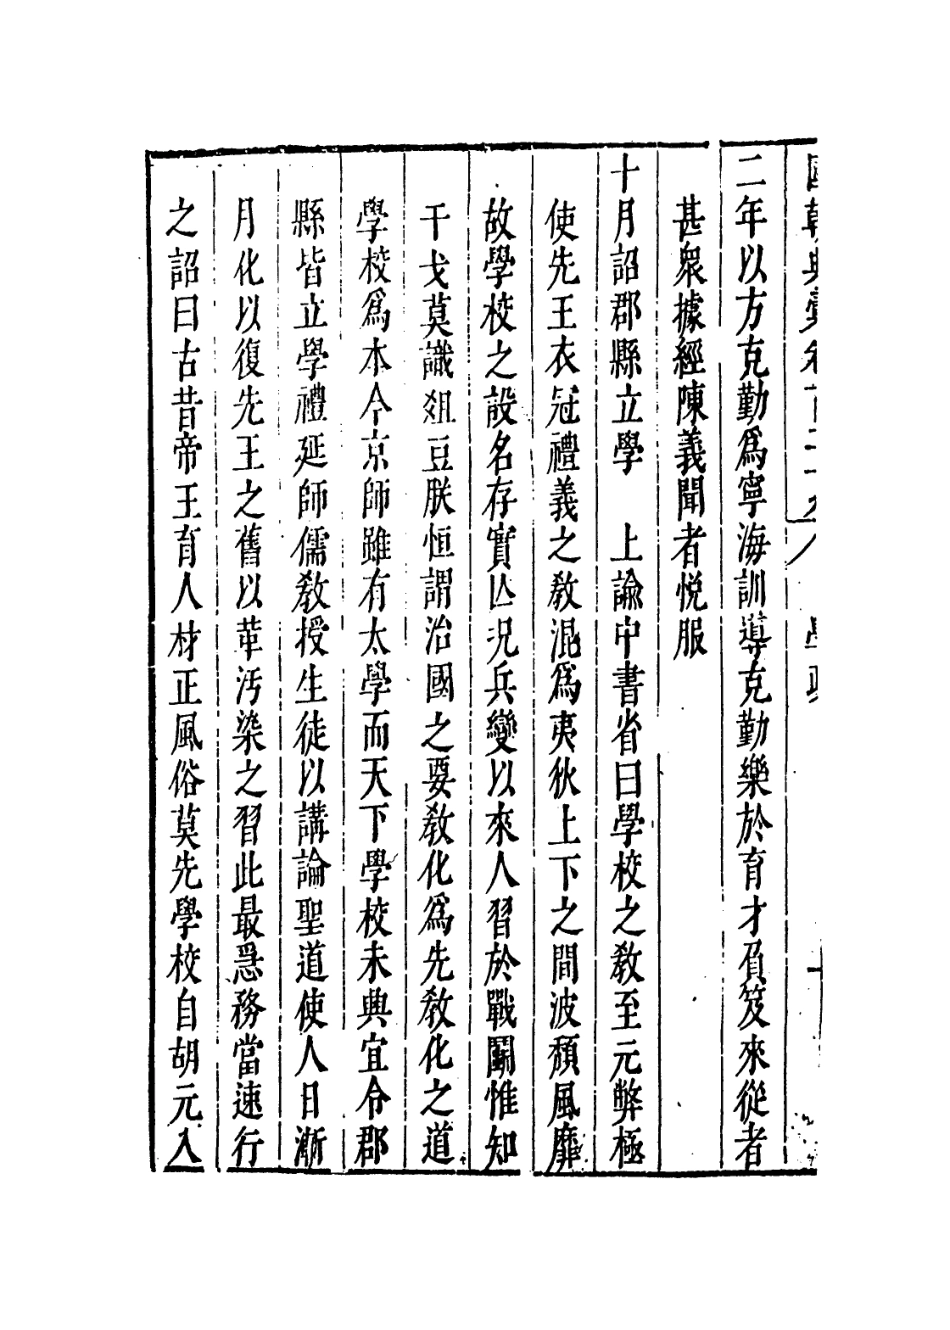 國朝典彙卷百二十九 學政
二年以方克勤爲寧海訓導克勤樂於育才負笈來從者
甚衆據經陳義聞者悅服
十月詔郡縣立學 上諭中書省曰學校之教至元弊極
使先王衣冠禮義之教混爲夷狄上下之間波頹風靡
故學校之設名存實亾况兵變以來人習於戰鬭惟知
干戈莫識俎豆朕恒謂治國之要教化爲先教化之道
學校爲本今京師雖有太學而天下學校未興宜令郡
縣皆立學禮延師儒教授生徒以講論聖道使人日漸
月化以復先王之舊以革汚染之習此最急務當速行
之詔曰古昔帝王育人材正風俗莫先學校自胡元入